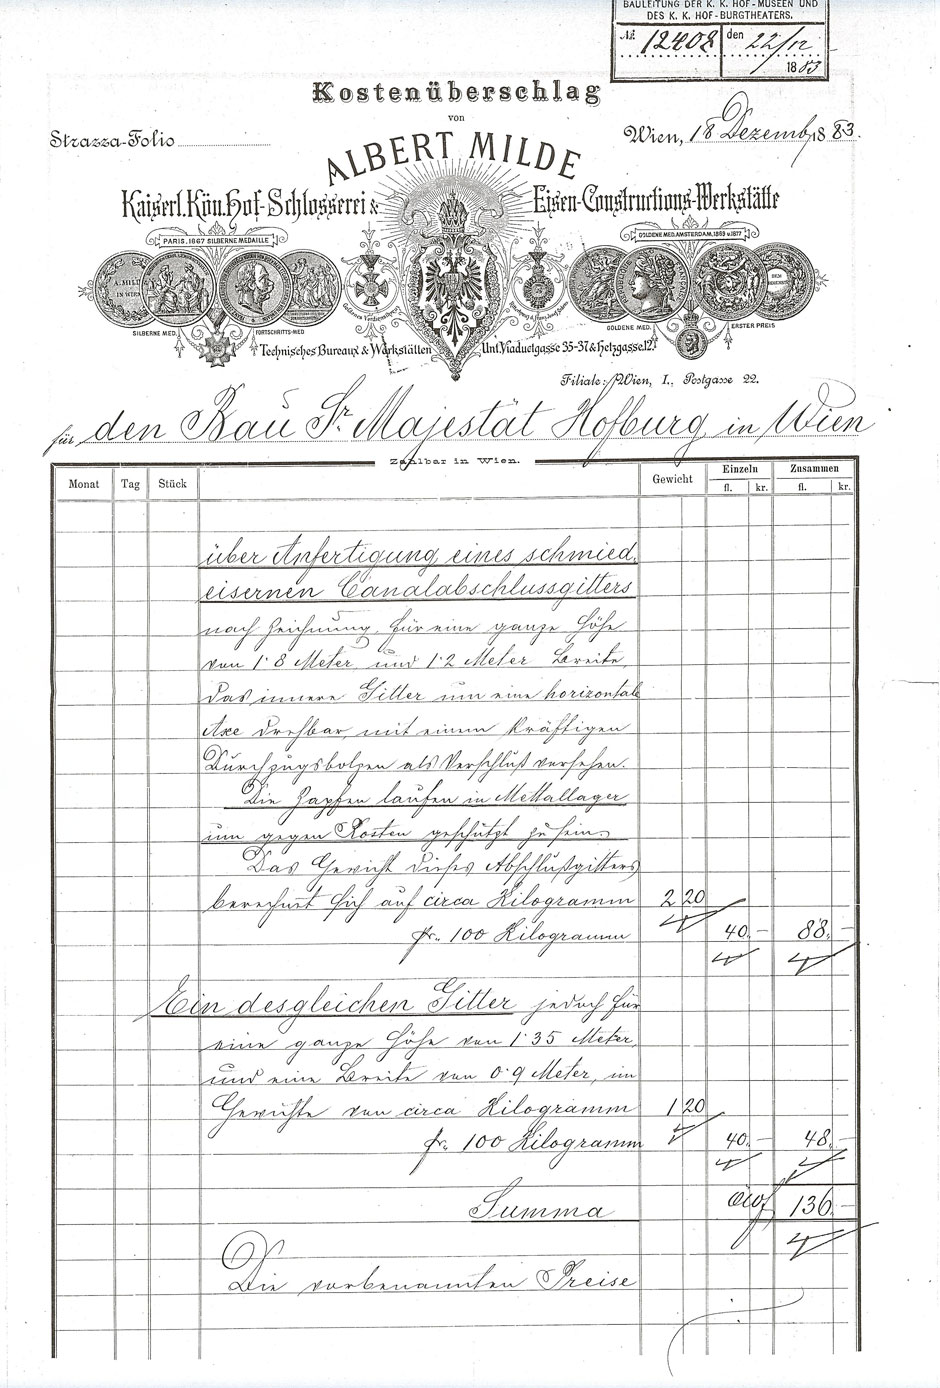 BAULEITUNG DER K. K. HOF-MUSEEN UND
DES K. K. HOF-BURGTHEATERS.
№ 12408 den 22/12
1883
Kostenüberschlag
von
Strazza-Folio
Wien, 18 Dezemb 1883.
ALBERT MILDE
Kaiserl. Kön. Hof-Schlosserei & Eisen-Constructions-Werkstätte
PARIS. 1867 SILBERNE MEDAILLE
GOLDENE MED. AMSTERDAM. 1869 u. 1877
A. MILDE
IN WIEN
SILBERNE MED.
FORTSCHRITTS-MED
GOLDENE MED.
ERSTER PREIS
Technisches Bureaux & Werkstätten Unt. Viaductgasse 35-37 & Hetzgasse 12.
Filiale: Wien, I., Postgasse 22.
für den Bau Sr. Majestät Hofburg in Wien
Zahlbar in Wien.
Monat Tag Stück Gewicht Einzeln Zusammen
fl. kr. fl. kr.
über Anfertigung eines schmied.
eisernen Canalabschlussgitters
nach Zeichnung, für eine ganze Höhe
von 1·8 Meter und 1·2 Meter Breite,
das innere Gitter um eine horizontale
Axe drehbar mit einem kräftigen
Durchzugsbolzen als Verschluß versehen.
Die Zapfen laufen in Mettallager
um gegen Rosten geschützt zu sein.
Das Gewicht dieses Abschlußgitters
berechnet sich auf circa Kilogramm 220
pr. 100 Kilogramm 40.- 88.-
Ein desgleichen Gitter jedoch für
eine ganze Höhe von 1·35 Meter,
und eine Breite von 0·9 Meter, im
Gewichte von circa Kilogramm 120
pr. 100 Kilogramm 40.- 48.-
Summa öWf 136.-
Die vorbenannten Preise